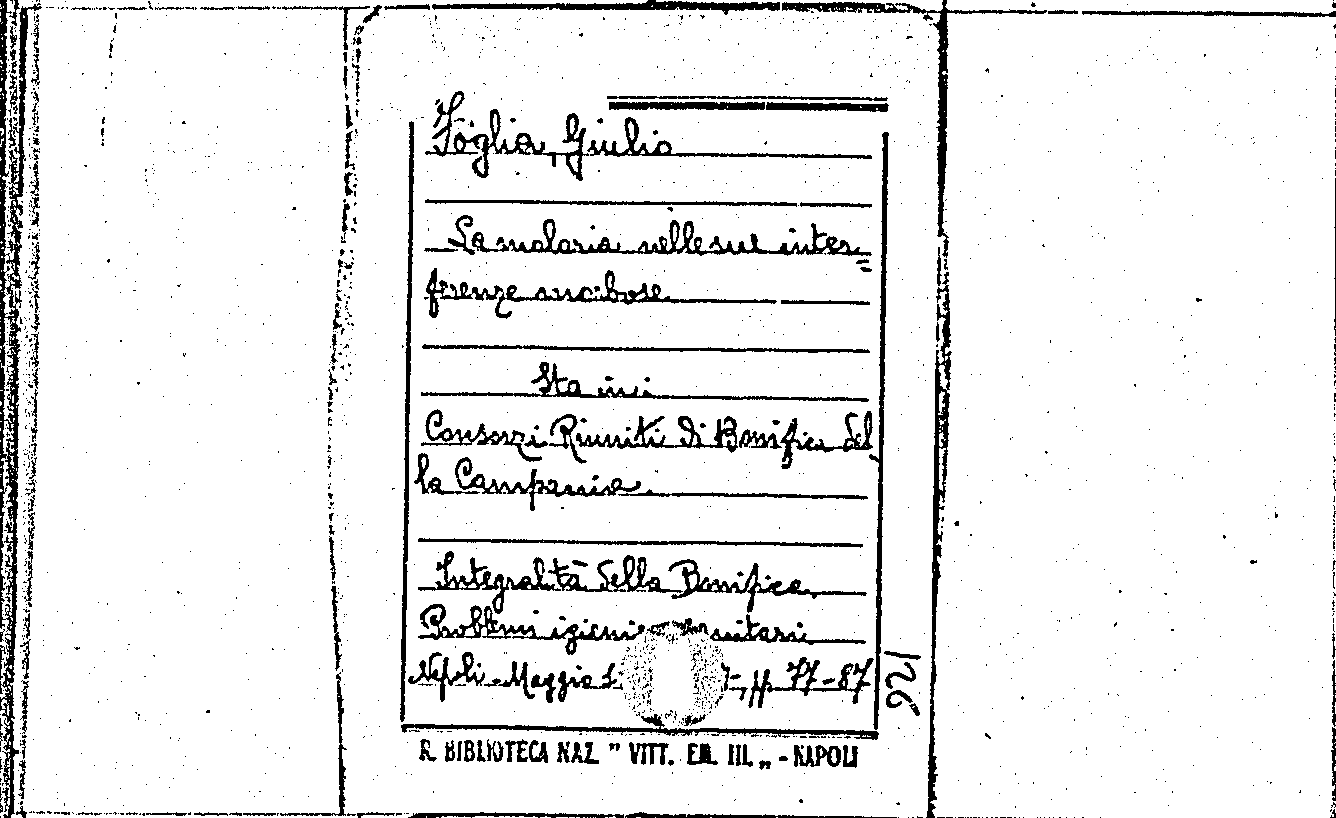 Foglia, Giulio
La malaria nelle sue inter=
ferenze morbose.
Sta in:
Consorzi Riuniti di Bonifica del
la Campania.
Integralità della Bonifica.
Problemi igienico sanitari
Napoli - Maggio 1 7-, pp. 77-87
126
R. BIBLIOTECA NAZ. " VITT. EM. III. „ - NAPOLI